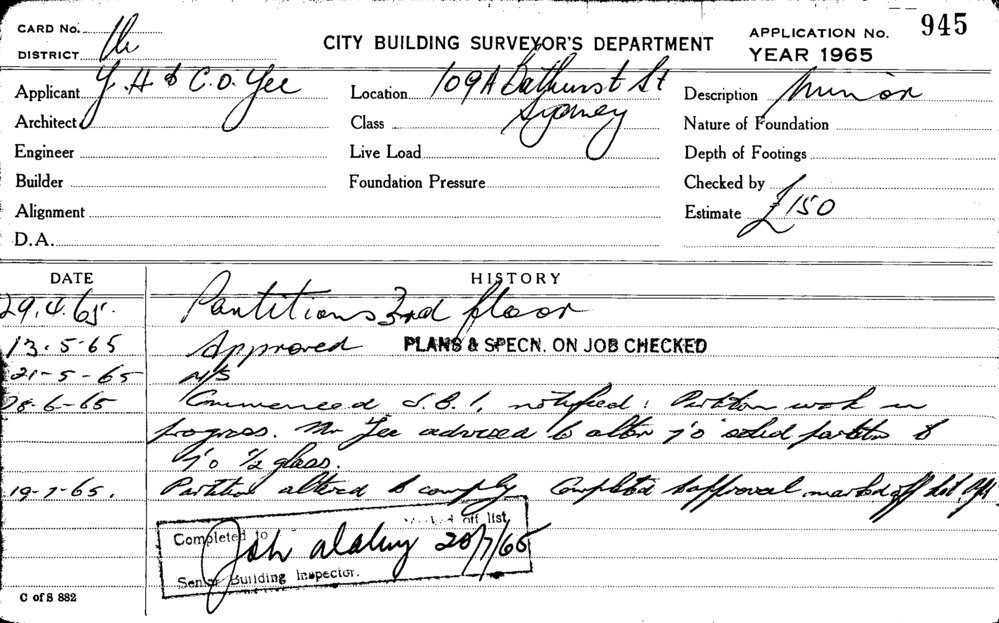 CARD No.
DISTRICT
CITY BUILDING SURVEYOR'S DEPARTMENT
APPLICATION No. 945
YEAR 1965
Applicant Y. H & C. O. Yee
Location 109A Bathurst St
Sydney
Description Minor
Architect
Class
Nature of Foundation
Engineer
Live Load
Depth of Footings
Builder
Foundation Pressure
Checked by
Alignment
Estimate £150
D.A.
DATE HISTORY
29.4.65. Partitions 3rd floor
13.5-65 Approved PLANS & SPECN. ON JOB CHECKED
21-5-65 N/S
28-6-65 Commenced S.B.I. notified: Partition work in
progress. Mr Yee advised to alter 7'0 solid partition to
7'0 1/2 glass.
19-7-65. Partition altered to comply Completed to approval marked off list
Completed to off list
20/7/65
Senior Building Inspector.
C of S 882